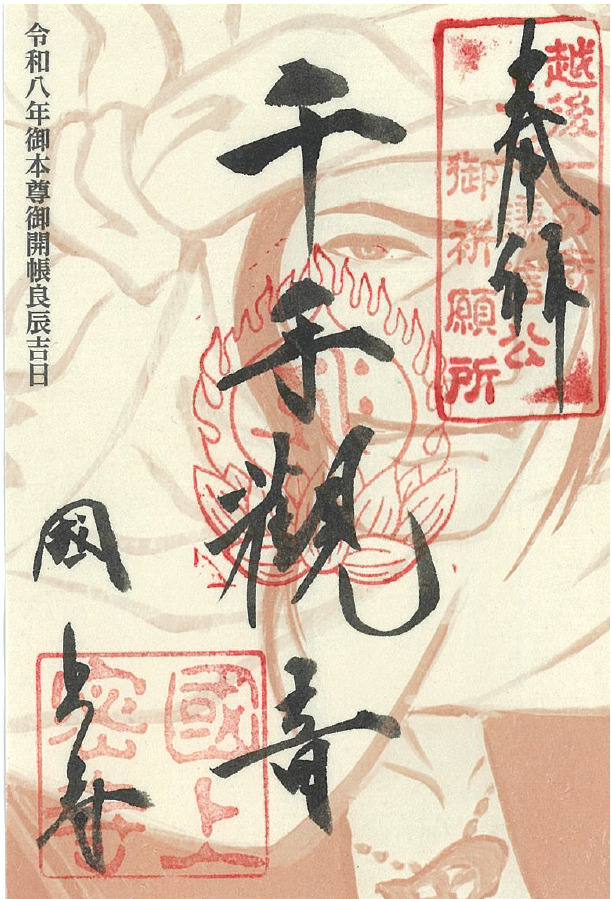 越後一の寺
謙信公
御祈願所
奉拝
千手観音
國上寺
國上
密寺
令和八年御本尊御開帳良辰吉日